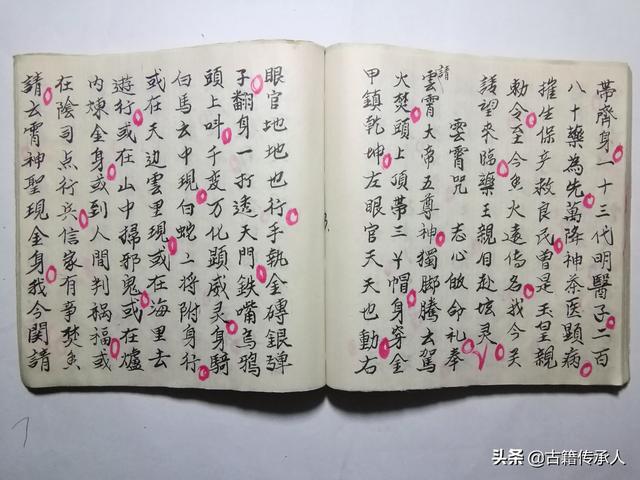 帶齊身一十三代明醫子二百
八十藥為先萬降神茶医顯病
摧生保产救良民曾是玉皇親
勅令至今魚火遠传名我今关
請望來临藥王親自赴坛灵
雲霄咒 志心皈命礼奉
請
雲霄大帝五尊神獨脚騰云駕
火焚頭上頂带三丫帽身穿金
甲鎮乾坤左眼官天天也動右
眼官地地也行手執金磚銀弹
子翻身一打透天門鉄嘴乌鴉
頭上呌千变万化頭威灵身騎
白馬云中現白蛇二将附身行
或在天边雲里現或在海里去
遊行或在山中掃邪鬼或在爐
内煉金身或到人間判禍福或
在陰司点行兵信家有事焚魚
請云霄神聖現金身我今関請
头条 @古籍传承人